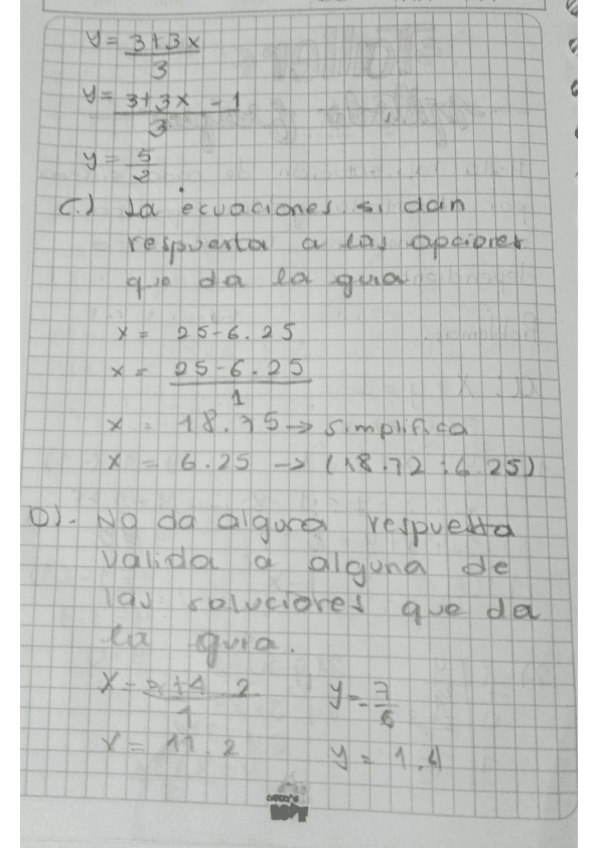 y = 3+3x
3
y = 3+3x - 1
3
y = 5
2
C.) La ecuaciones si dan
respuesta a las opciones
que da la guia
x = 25-6.25
x = 25-6.25
1
x = 18.75 → simplifica
x = 6.25 → (18.72 ; 6.25)
D). No da alguna respuesta
valida a alguna de
las soluciones que da
la guia.
x = +4 2 y = 7
1 6
x = 11.2 y = 1.4